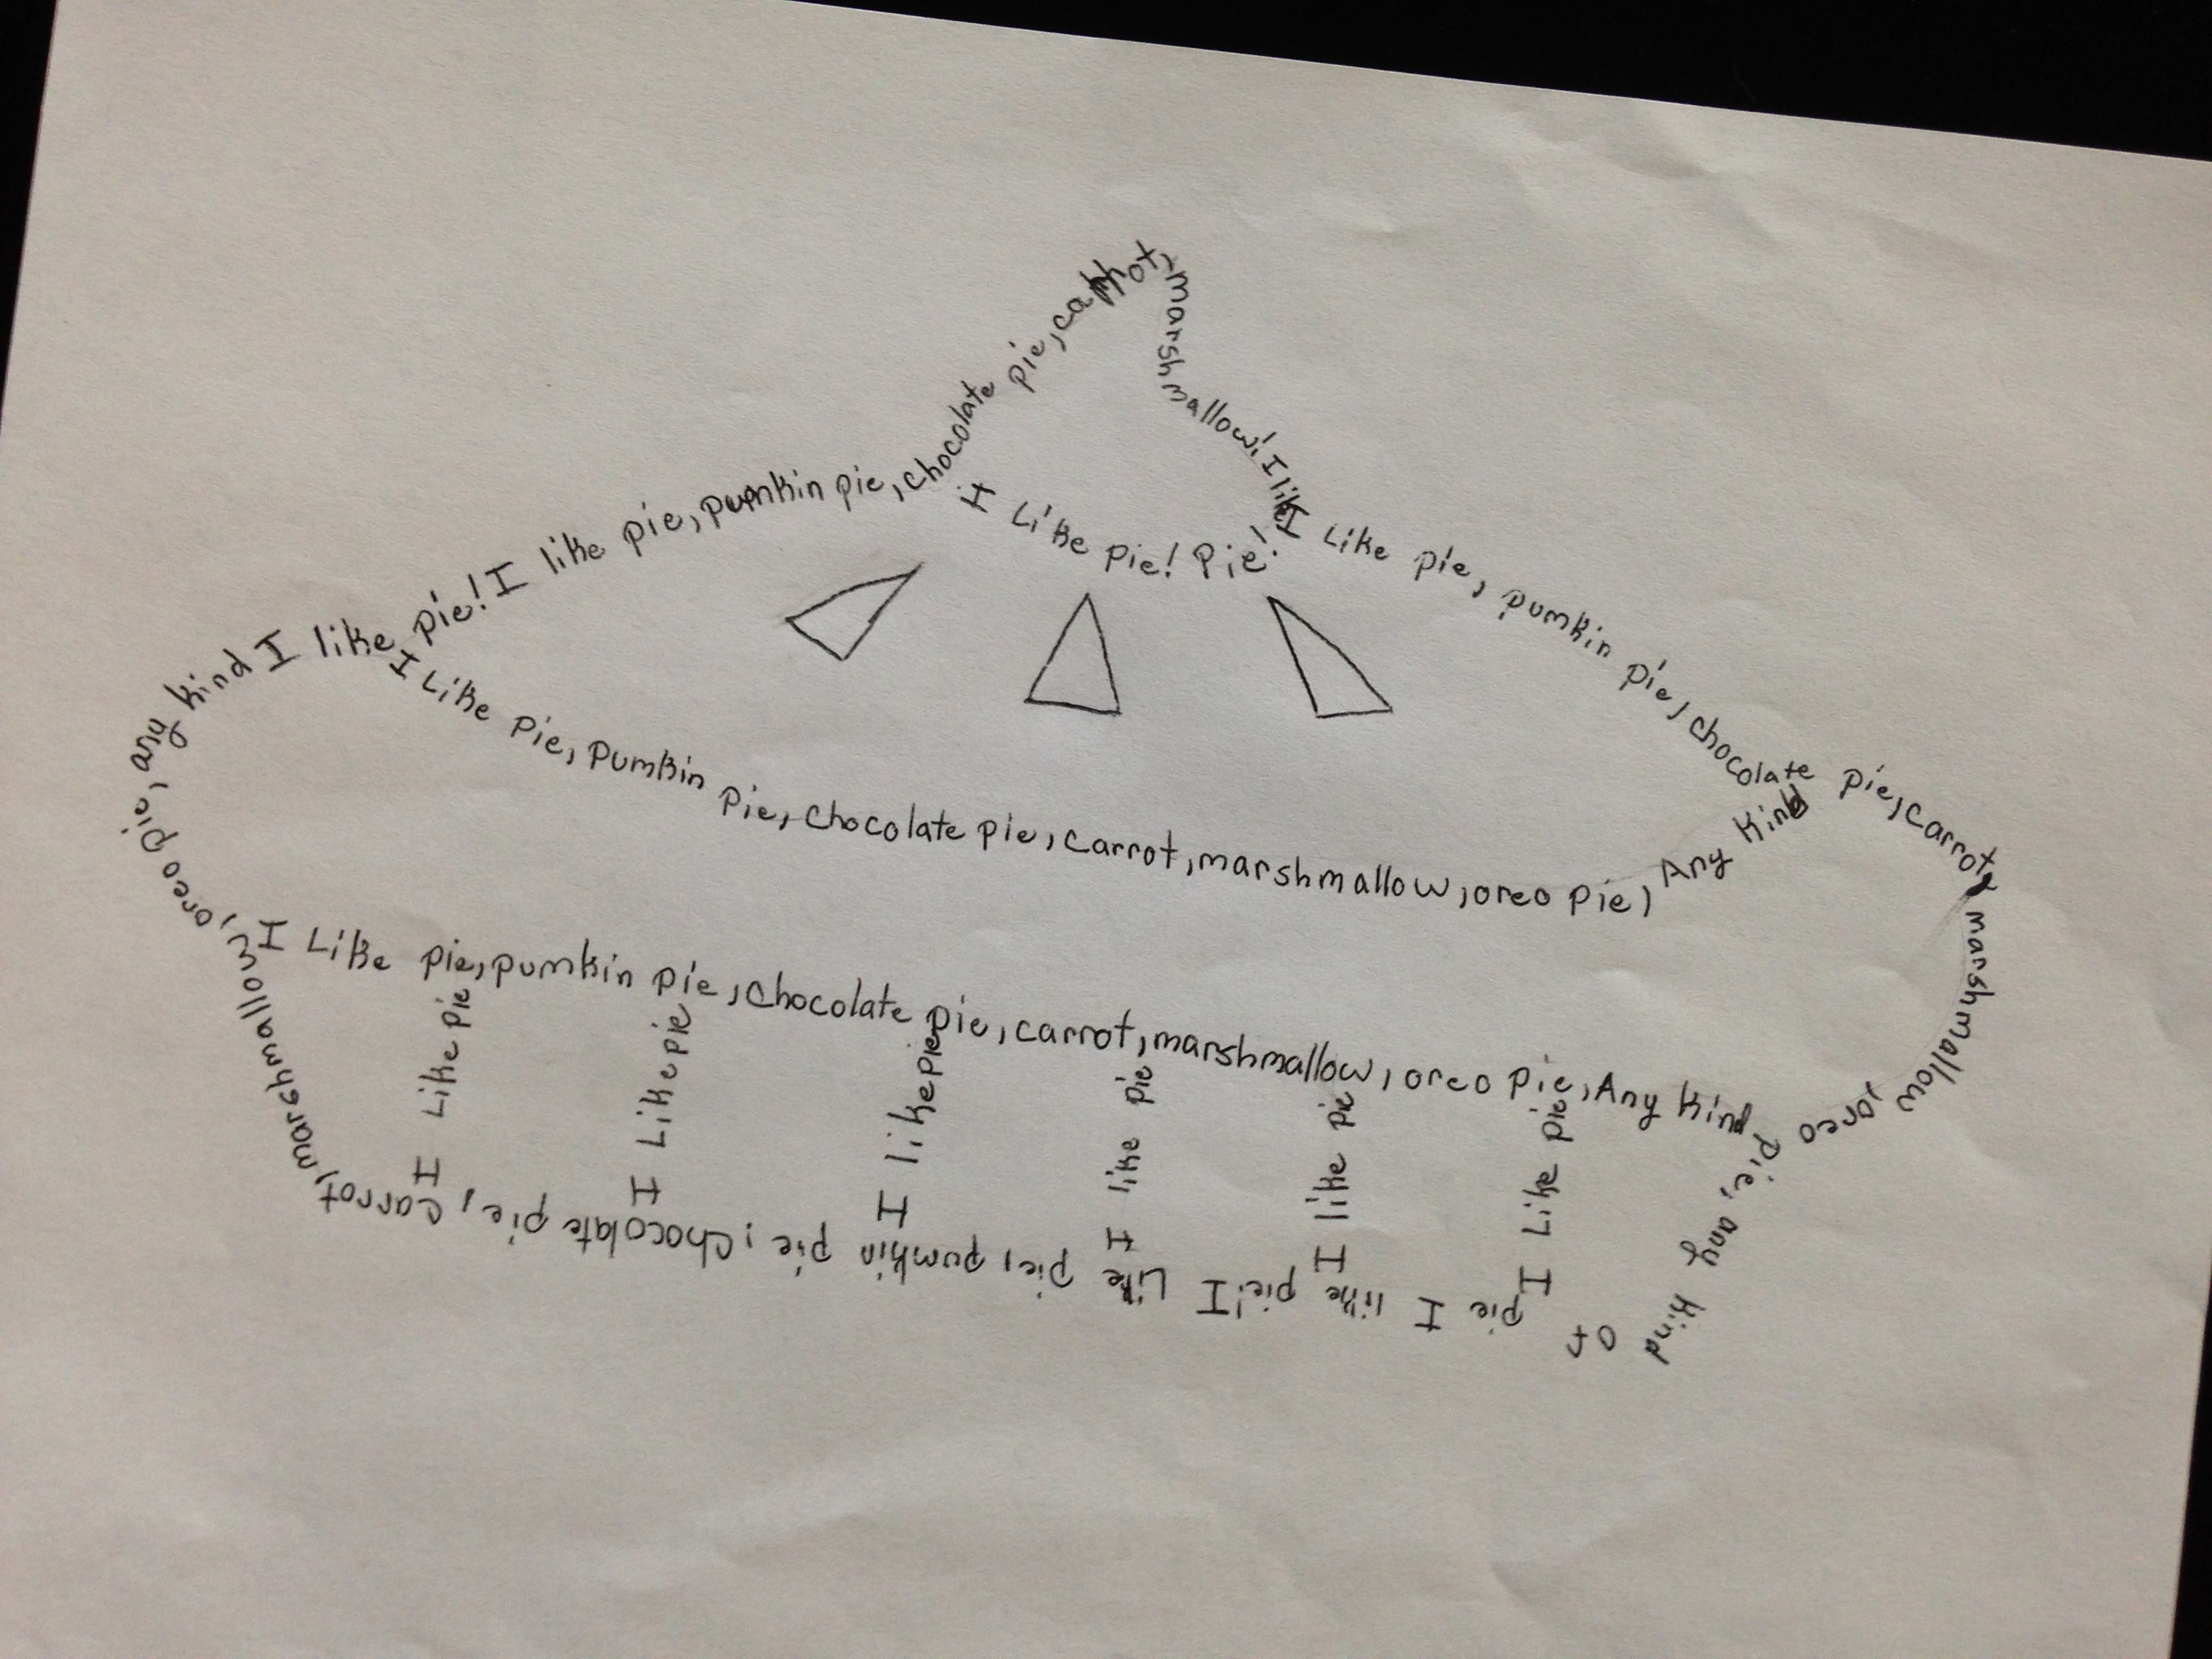 I like pie! I like pie, pumkin pie, chocolate pie, carrot, marshmallow! I like
I Like pie! Pie!
I Like pie, pumkin pie, chocolate pie, carrot, marshmallow, oreo pie, any kind of pie I like pie! I Like pie, pumkin pie, chocolate pie, carrot, marshmallow, oreo pie, any kind
I Like pie, Pumkin Pie, chocolate pie, carrot, marshmallow, oreo pie, Any kind
I Like pie, pumkin pie, chocolate pie, carrot, marshmallow, oreo pie, Any kind
I Like pie
I Like pie
I like pie
I like pie
I like pie
I Like pie